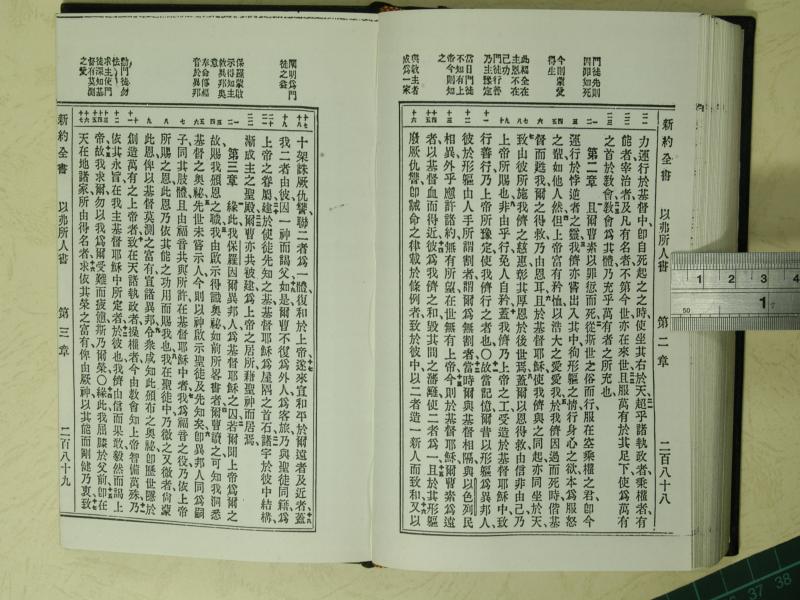 新約全書 以弗所人書 第二章 二百八十八
力運行於基督中卽自死起之之時使坐其右於天超乎諸執政者乘權者有
能者宰治者及凡有名者不第今世亦在來世且服萬有於其足下使爲萬有
之首於敎會敎會爲其體乃充乎萬有者之所充也
第二章 且爾曹素以罪愆而死從斯世之俗而行服在空乘權之君卽今
運行於悖逆者之靈我儕亦嘗出入其中徇形軀之情行身心之欲本爲服怒
之輩如他人然但上帝富有矜恤以浩大之愛愛我於我儕因過而死時偕基
督而甦我爾之得救乃由恩耳且於基督耶穌使我儕與之同起亦同坐於天
致由彼所施我儕之慈惠彰其厚恩於後世焉蓋爾以恩得救由信非由己乃
上帝所賜也非由乎行免人自矜蓋我儕乃上帝之工受造於基督耶穌中致
行善行乃上帝所豫定使我儕行之者也〇故當記憶爾昔以形軀爲異邦人
彼於形軀由人手所謂割者謂爾爲無割者當時爾與基督相隔與以色列民
相異外乎應許諸約無有所望在世無有上帝今則於基督耶穌爾曹素爲遠
者以基督血而得近彼爲我儕之和毀其間之藩籬使二者爲一且於其形軀
廢厥仇讐卽誡命之律載於條例者致於彼中以二者造一新人而致和又以
門徒先則因罪如死
今則蒙愛得生
此福全在主恩不在己功
門徒行善乃主豫定
當日門徒不知有上帝今則知之
與敬主者成爲一家
新約全書 以弗所人書 第三章 二百八十九
十架誅厥仇讐聯二者爲一體復和於上帝遂來宣和平於爾遠者及近者蓋
我二者由彼因一神而謁父如是爾曹不復爲外人爲客旅乃與聖徒同籍爲
上帝之眷屬建於使徒先知之基基督耶穌爲屋隅之首石諸宇於彼中結構
漸成主之聖殿爾曹亦共彼建爲上帝之居所藉聖神而居焉
第三章 緣此我保羅因爾異邦人爲基督耶穌之囚若爾聞上帝爲爾之
故賜我頒恩之職我由啟示得識奧秘如前所畧書者爾曹讀之可知我洞悉
基督之奧秘先世未嘗示人今則以神啟示聖徒及先知矣卽異邦人同爲嗣
子同其肢體且由福音共與所許在基督耶穌中者我爲福音之役乃依上帝
所賜之恩此恩乃依其能之功用而賜我也我在聖徒中乃微之又微者尚蒙
此恩俾以基督莫測之富有宣諸異邦令衆咸知此頒布之奧秘卽歷世隱於
創造萬有之上帝者致在天諸執政者操權者今由敎會知上帝智備萬殊乃
依其永旨在我主基督耶穌中所定者於彼也我儕由信而果敢毅然而謁上
帝故我求爾勿以我爲爾受難而疲憊斯乃爾榮〇緣此我屈膝於父前卽在
天在地諸家所由得名者求依其榮之富有俾由厥神以其能而剛健乃衷致
闡明爲門徒之益
保羅蒙啟示得知主敎異邦奧意
奉命傳福音於異邦
勸門徒勿怯
求主使門徒深知基督有莫測之愛